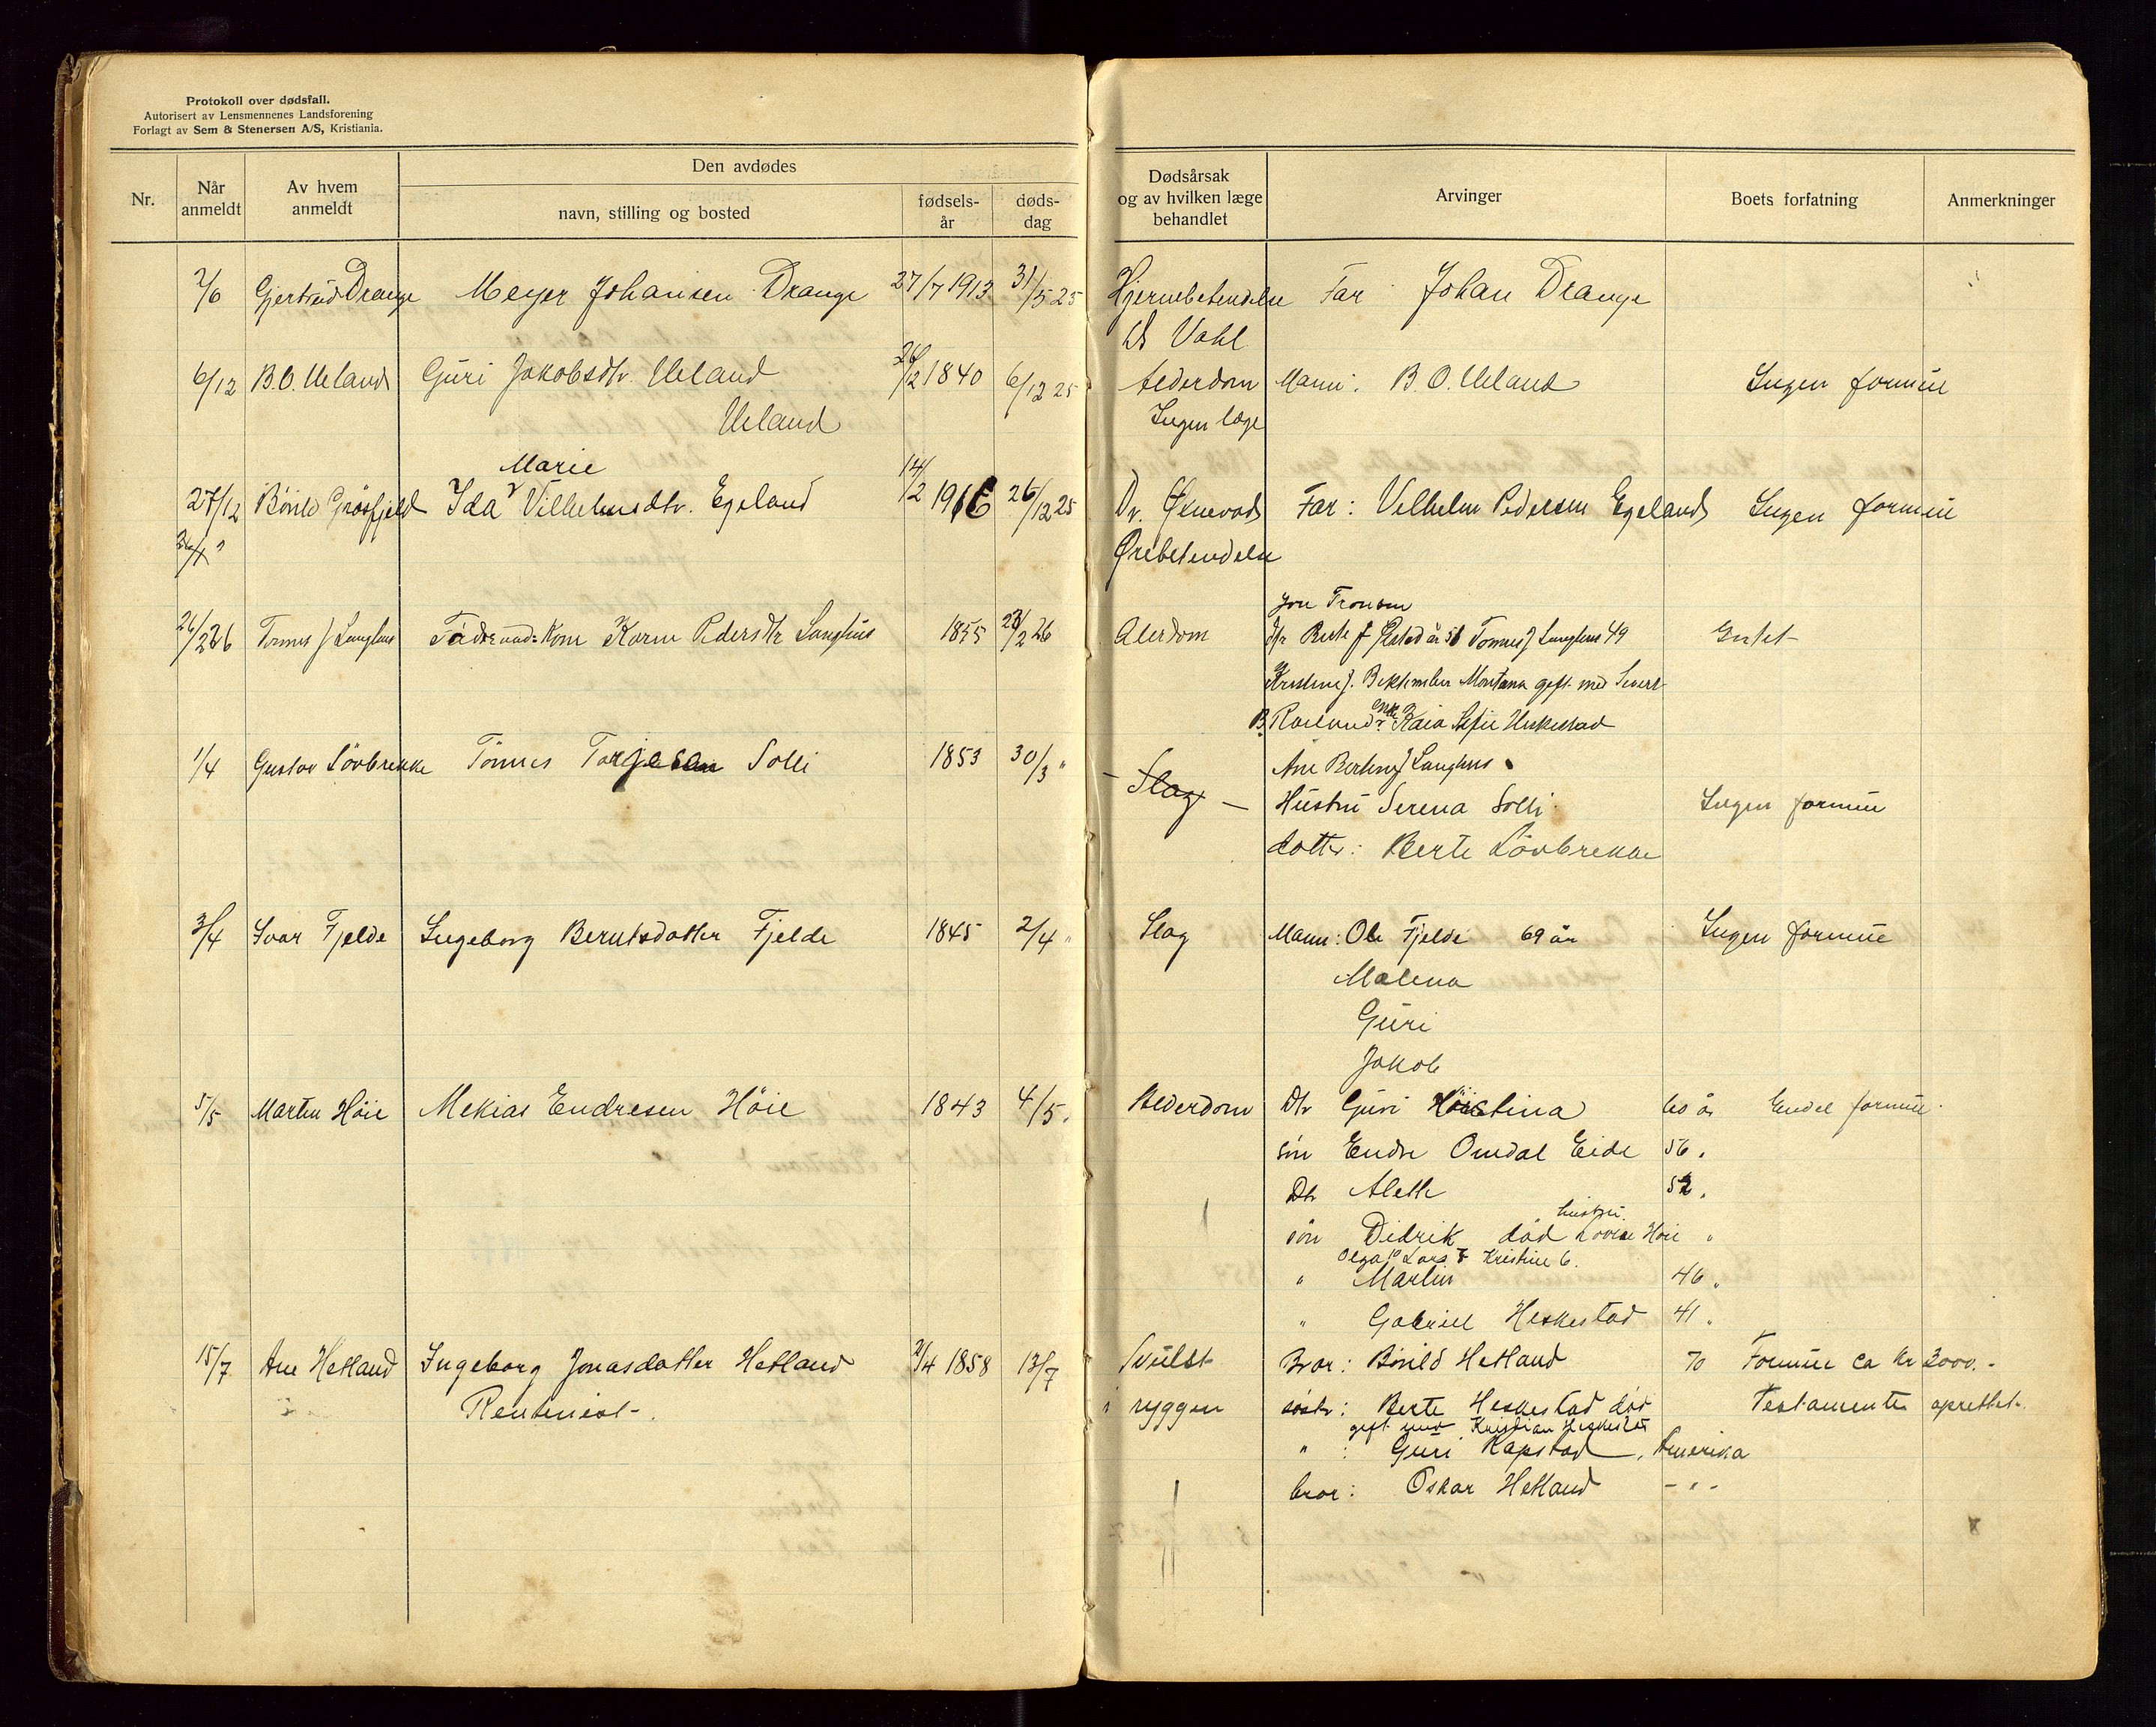 Protokoll over dødsfall.
Autorisert av Lensmennenes Landsforening
Forlagt av Sem & Stenersen A/S, Kristiania.
Nr.
Når anmeldt
Av hvem anmeldt
Den avdødes
navn, stilling og bosted
fødsels-år
døds-dag
Dødsårsak og av hvilken læge behandlet
Arvinger
Boets forfatning
Anmerkninger
2/6 Gjertrud Drange Meyer Johansen Drange 27/7 1913 31/5 25 Hjernebetendelse Far Johan Drange
Dr Vahl
6/12 B.O. Ueland Guri Jakobsdtr. Ueland 26/2 1840 6/12 25 Alderdom Mann: B.O. Ueland Ingen formue
Ueland Ingen læge
Marie
27/12 Bórild Grøsfjeld Ida Vilhelmsdtr. Egeland 14/2 1916 26/12 25 Dr. Øknevad Far: Vilhelm Pedersen Egeland Ingen formue
Ørebetendelse
Jon Tronsen
26/2 26 Tonnes J Langhus Karen Pedersdtr Langhus 1855 23/2 26 Alerdom dtr Berte J Ølsted år 51 Tonnes J Langhus 49 Entet
Kristine J. Montana gift med Sivert
B. Roslund enke Kaia Sofie Heskestad
Ane Bertine J Langhus
1/4 Gustav Lövbrekke Tönnes Torgesen Solli 1853 30/3 "
- Slag - Hustru Serena Solli Ingen formue
datter: Berte Lövbrekke
3/4 Ivar Fjelde Ingeborg Berntsdatter Fjelde 1845 2/4 " Slag Mann: Ole Fjelde 69 år Ingen formue
Malena
Guri
Jakob
5/5 Martin Höie Mekias Endresen Höie 1843 4/5. Alderdom Dtr Guri Höistina 60 år Endel formue.
sön Endre Omdal Eide 56 "
Dtr Alette 52 "
hustru
sön Didrik död Lovise Höie "
Olga 10 Lars 8 Kristine 6.
" Martin 46 "
" Gabriel Heskestad 41 "
15/7 Ane Hetland Ingeborg Jonasdatter Hetland 2/4 1858 13/7 Svulst Bror: Börild Hetland 70 Formue ca kr 3000.-
Rentenist - i ryggen söstr: Berte Heskestad död Testamente oprettet.
gift med Kristian Heskestad
" : Guri Rapstad, Amerika
bror: Oskar Hetland - " -